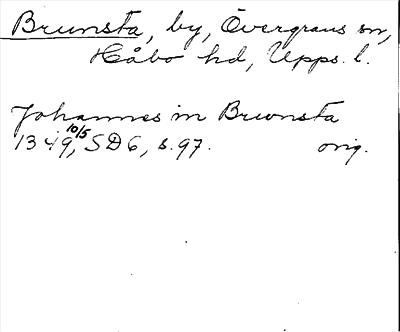 Brunsta, by, Övergrans sn,
Håbo hd, Upps. l.
Johannes in Brunsta
1349, 10/5 SD 6, s. 97. orig.